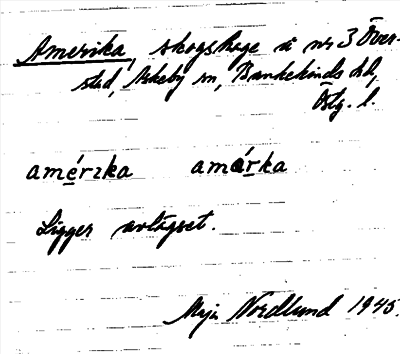 Amerika, skogshage å nr 3 Över-
stad, Askeby sn, Bankekinds hd,
Östg. l.
amérzka amárka
Ligger avlägset.
Maja Nordlund 1945.